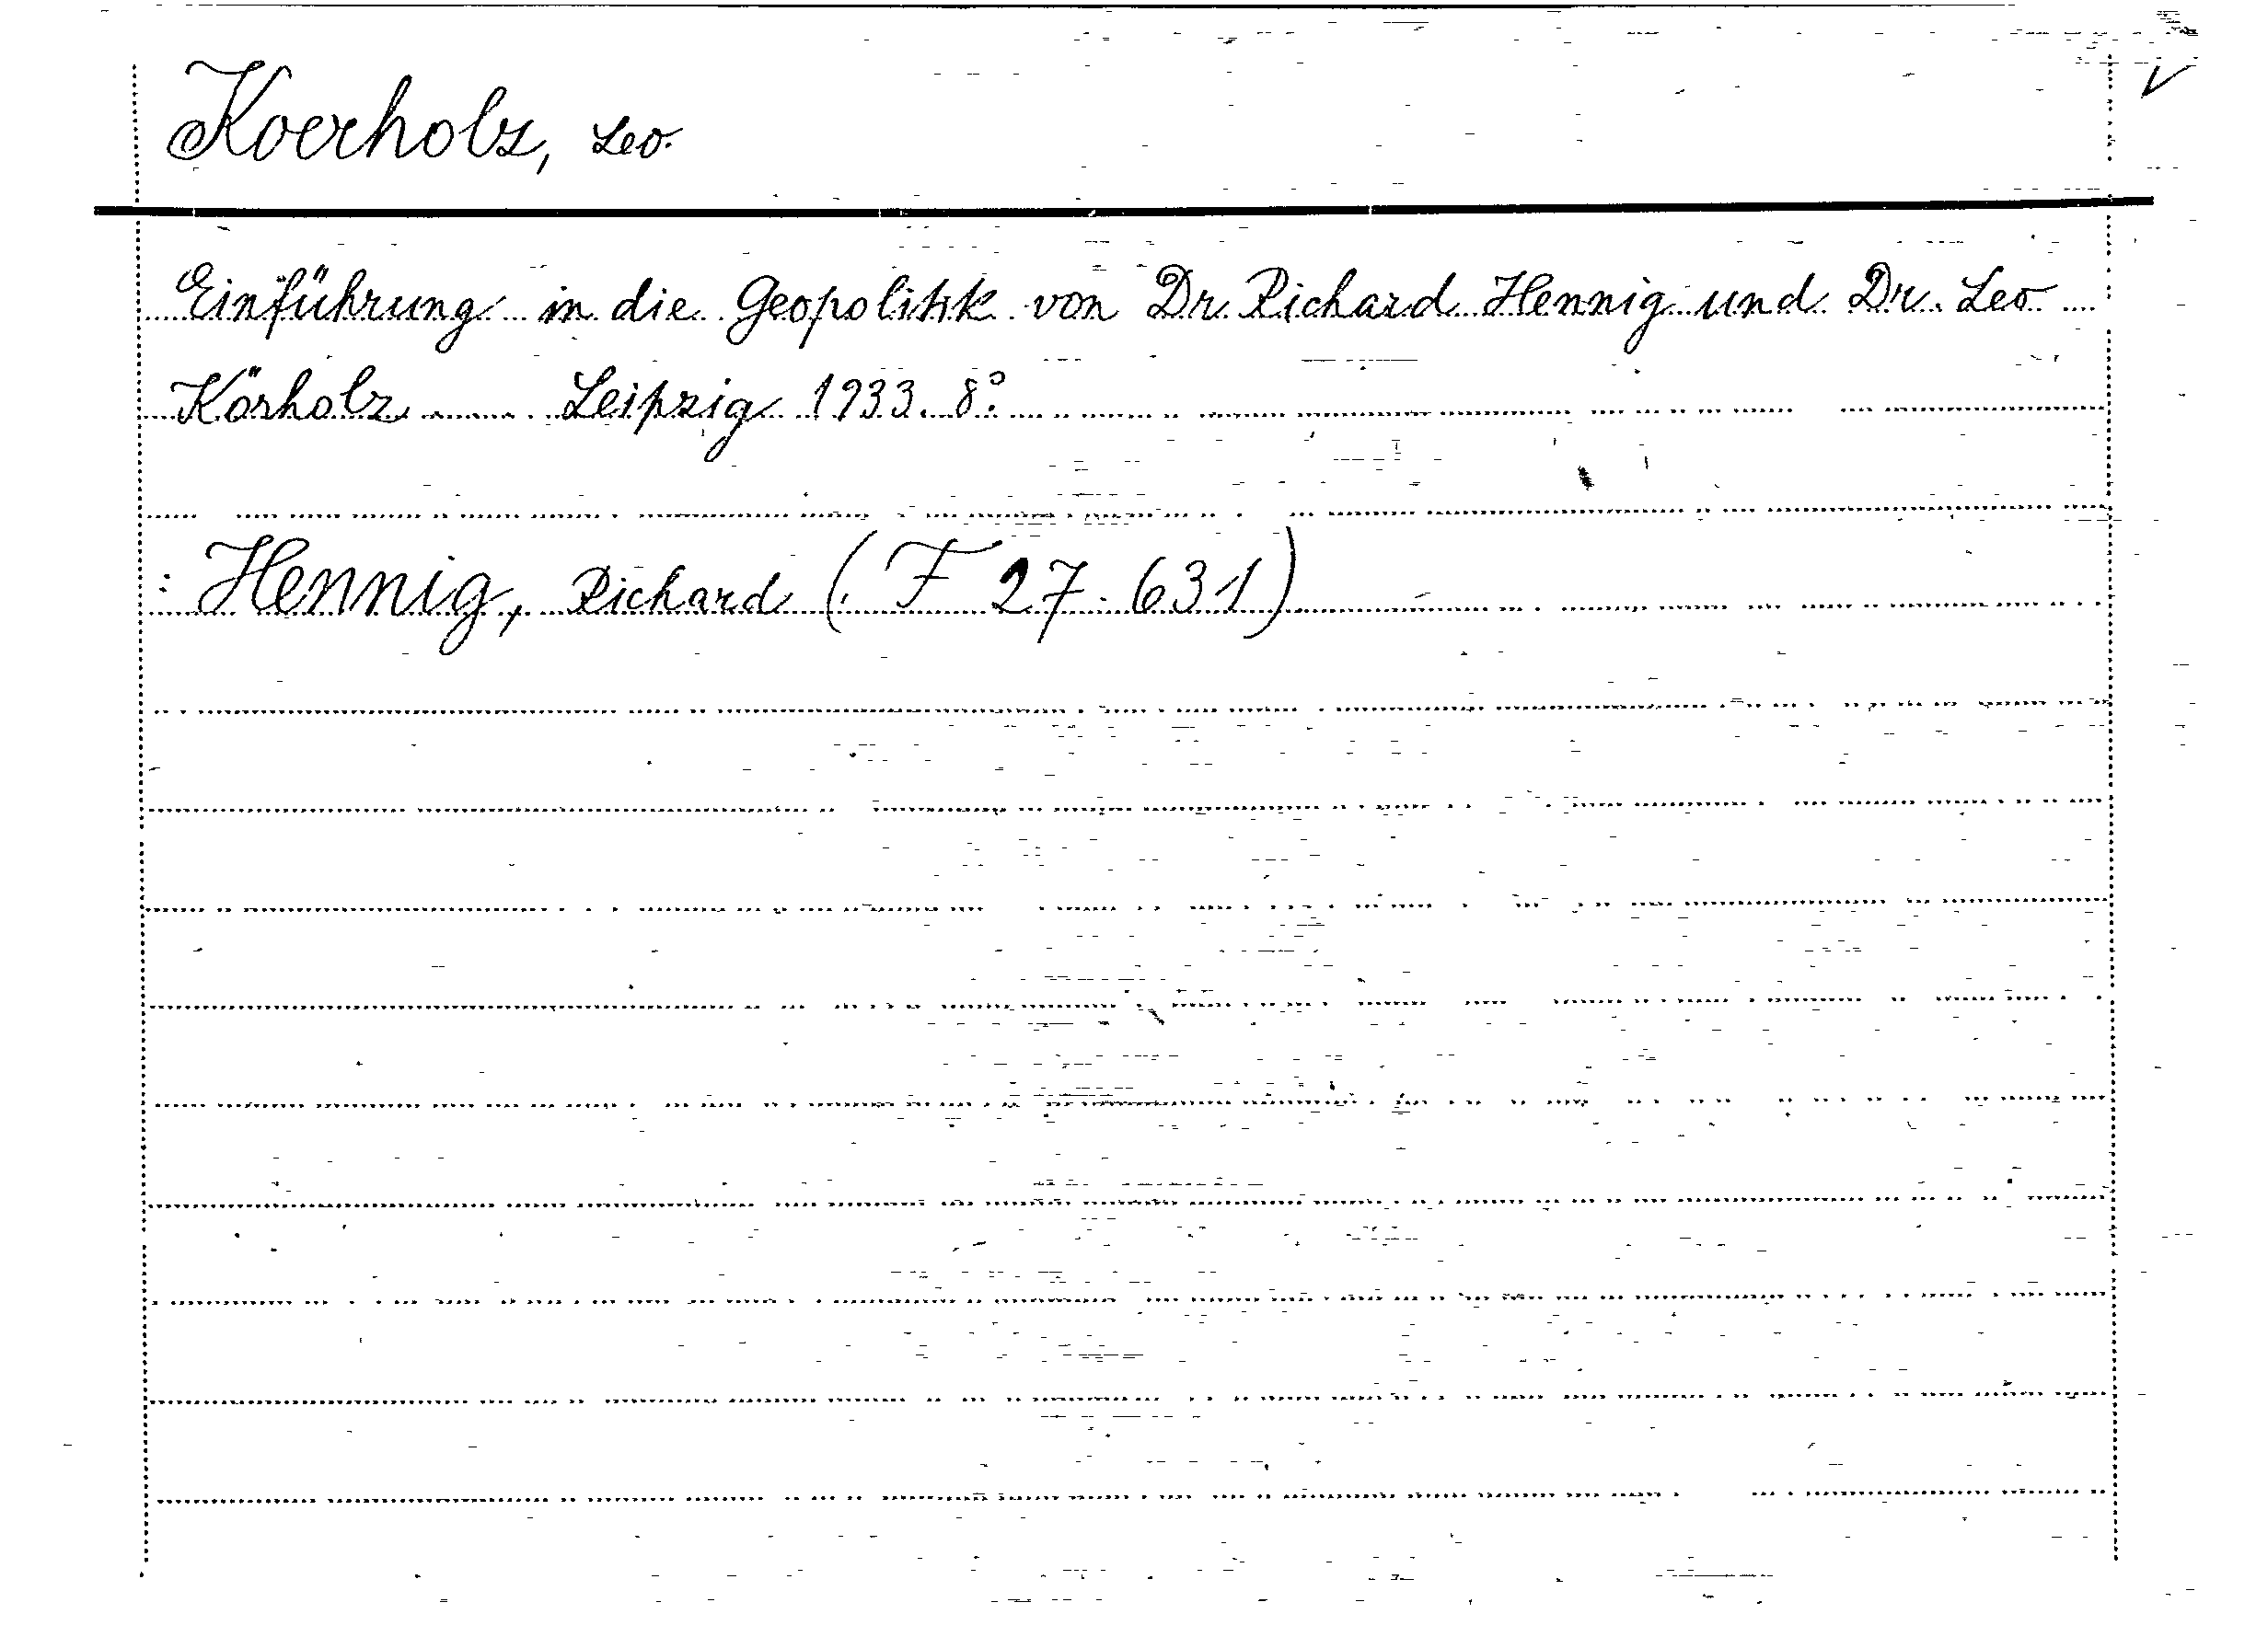 Koerholz, Leo.
Einführung in die Geopolitik von Dr. Richard Hennig und Dr. Leo
Körholz Leipzig 1933. 8°.
: Hennig, Richard (F 27.631)